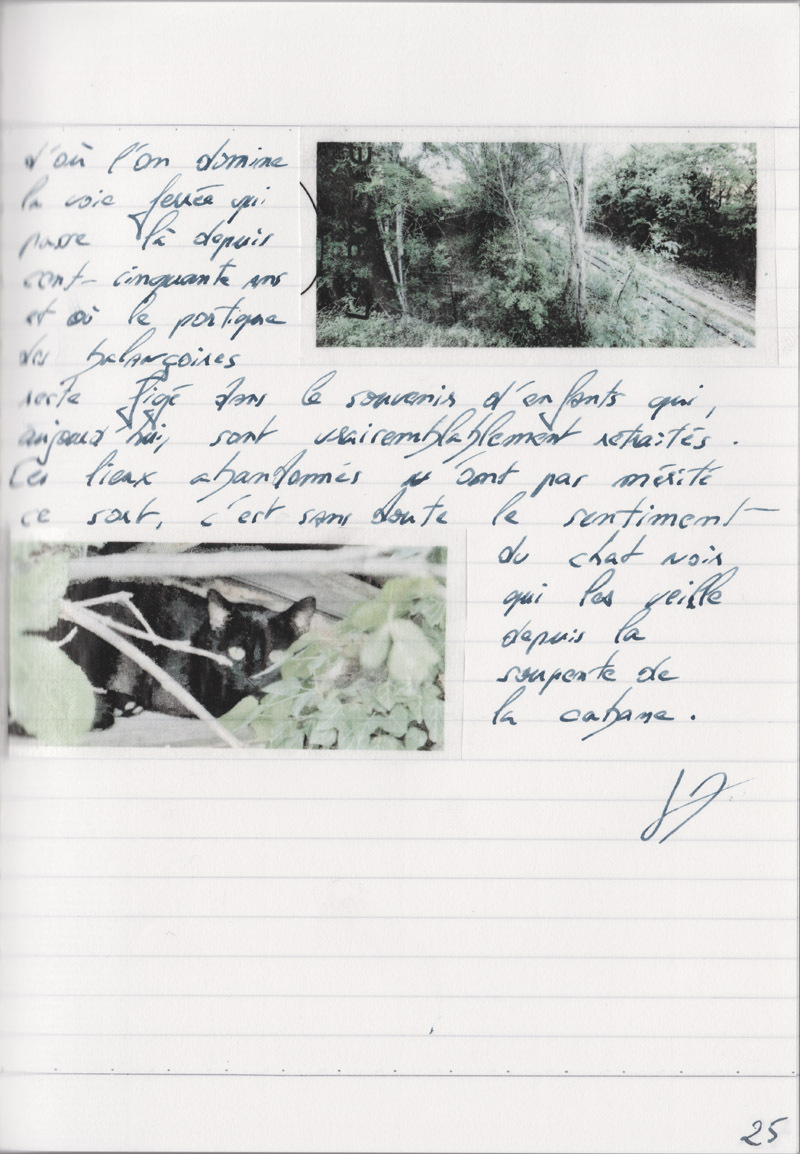 d'où l'on domine
la voie ferrée qui
passe là depuis
cent-cinquante ans
et où le portique
des balançoires
reste figé dans le souvenir d'enfants qui,
aujourd'hui, sont vraisemblablement retraités.
Ces lieux abandonnés n'ont pas mérité
ce sort, c'est sans doute le sentiment
du chat noir
qui les veille
depuis la
soupente de
la cabane.
25